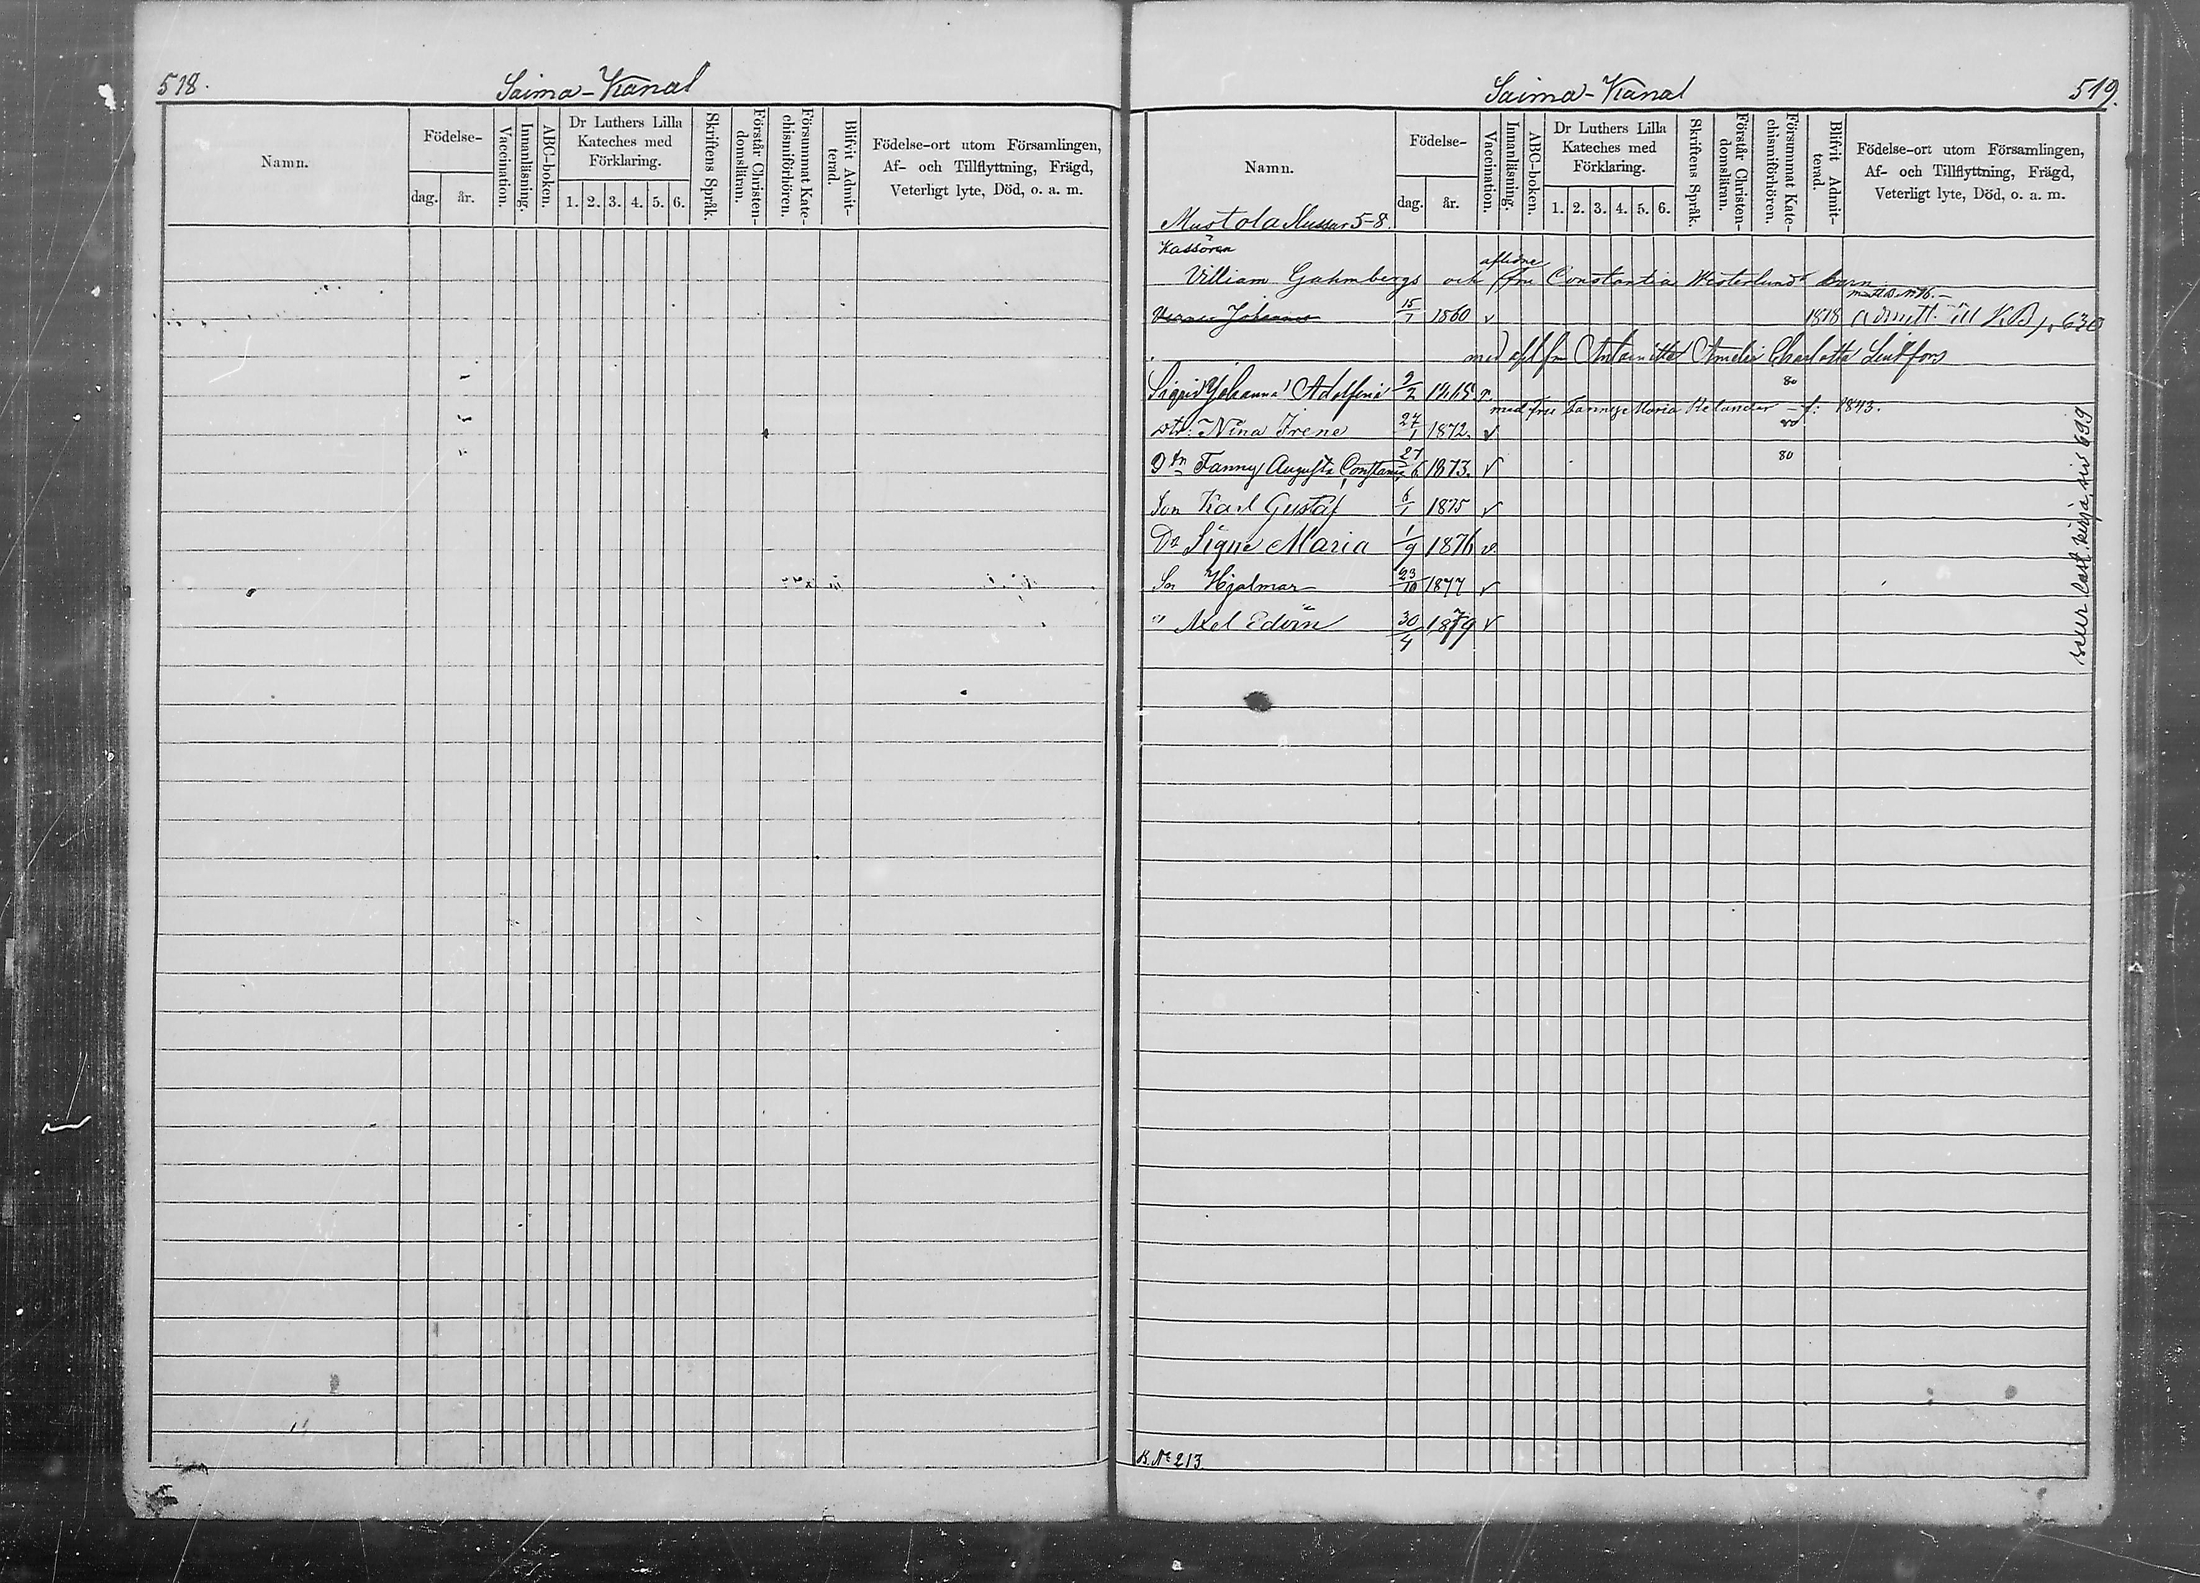 518.
Saima-Kanal
Namn.
Födelse-
dag.
år.
Vaccination.
Innanläsning.
ABC-boken.
Dr Luthers Lilla
Kateches med
Förklaring.
1. 2. 3. 4. 5. 6.
Skriftens Språk.
Förstår Christen-
domsläran.
Försummat Kate-
chismiförhören.
Blifvit Admit-
terad.
Födelse-ort utom Församlingen,
Af- och Tillflyttning, Frägd,
Veterligt lyte, Död, o. a. m.
Saima-Kanal
519.
Namn.
Födelse-
dag.
år.
Vaccination.
Innanläsning.
ABC-boken.
Dr Luthers Lilla
Kateches med
Förklaring.
1. 2. 3. 4. 5. 6.
Skriftens Språk.
Förstår Christen-
domsläran.
Försummat Kate-
chismiförhören.
Blifvit Admit-
terad.
Födelse-ort utom Församlingen,
Af- och Tillflyttning, Frägd,
Veterligt lyte, Död, o. a. m.
Mustola Slussar 5-8.
Kassören
aflidne
William Gahmbergs och fru Constantia Westerlunds barn
Johannes 15/1 1860 v 1878 admitt. till K.B. p. 630
med afl. fru Antoinette Amelie Charlotta Lindfors
Sigrid Johanna Adolfina 9/2 v. 80
med fru Fannye Maria Relander - f: 1843.
Dtr: Nina Irene 27/1 1872. v 80
Dtr Fanny Augusta Constance 27/6 1873. v 80
Son Karl Gustaf 6/1 1875 v
Dr Signe Maria 1/9 1876 v.
Sn Hjalmar 23/10 1877 v
" Axel Edvin 30/4 1879 v
699
K. No 213